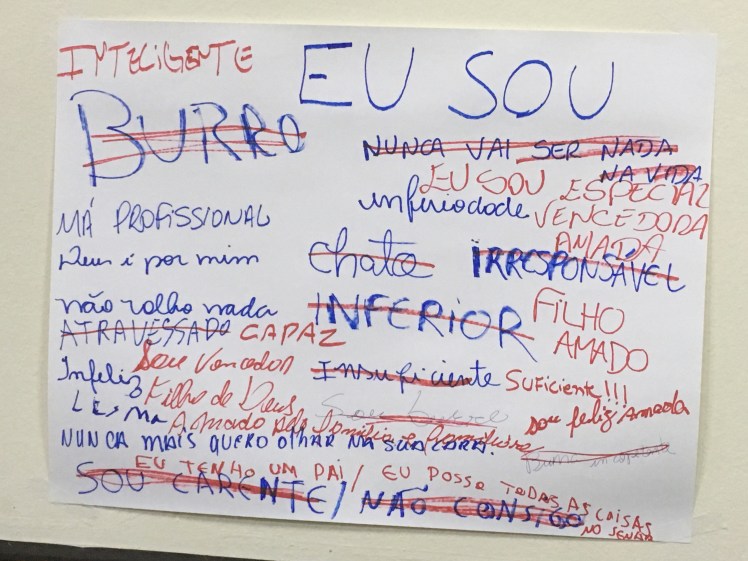 INTELIGENTE
EU SOU
BURRO
NUNCA VAI SER NADA
NA VIDA
EU SOU ESPECIAL
inferiodade VENCEDORA
AMADA
MÁ PROFISSIONAL
Deus é por mim
chata
IRRESPONSÁVEL
não valho nada
INFERIOR
FILHO
AMADO
ATRAVESSADO CAPAZ
Sou Vencedor
Insuficiente SUFICIENTE!!!
Infeliz Filho de Deus
Sou burro
sou feliz Amada
Amado pela Família e
NUNCA MAIS QUERO OLHAR NA SUA CARA.
Burra incapaz
EU TENHO UM PAI / EU POSSO TODAS AS COISAS
NO SENHOR
SOU CARENTE / NÃO CONSIGO